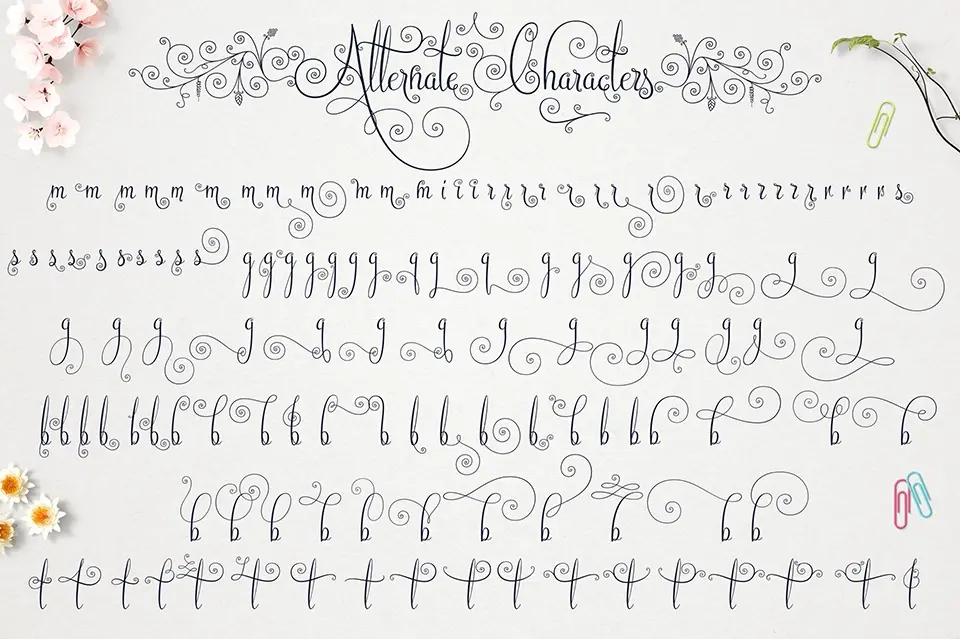 Alternate Characters
m m m m m m m m m m m m i i i r r r r r r r r r r r r r r r r r r r s
s s s s s s s s s s g g g g g g g g g g g g g g g g g
g g g g g g g g g g g g g g
b b b b b b b b b b b b b b b b b b b b b b b
b b b b b b b b b b b
t t t t t t t t t t t t t t t t t t